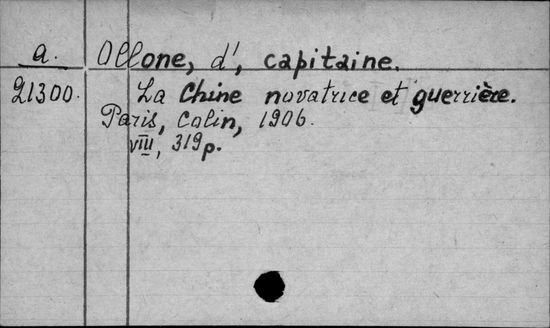 a. Ollone, d', capitaine.
21300. La Chine novatrice et guerrière.
Paris, Colin, 1906.
VIII, 319p.